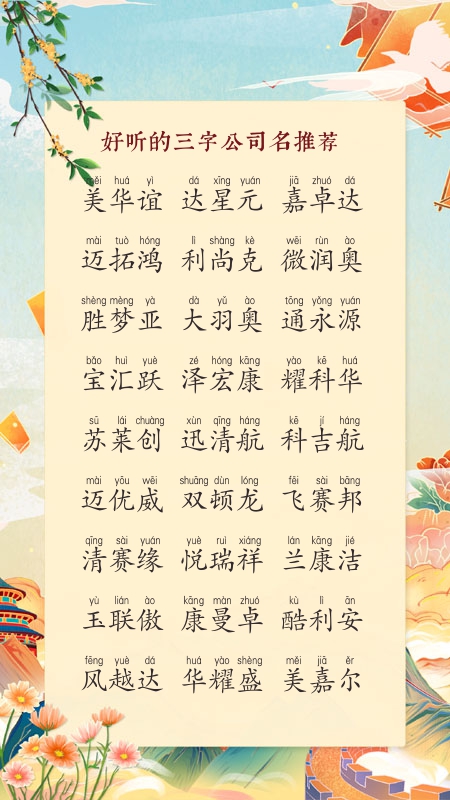 好听的三字公司名推荐
měi huá yì dá xīng yuán jiā zhuó dá
美华谊 达星元 嘉卓达
mài tuò hóng lì shàng kè wēi rùn ào
迈拓鸿 利尚克 微润奥
shèng mèng yà dà yǔ ào tōng yǒng yuán
胜梦亚 大羽奥 通永源
bǎo huì yuè zé hóng kāng yào kē huá
宝汇跃 泽宏康 耀科华
sū lái chuàng xùn qīng háng kē jí háng
苏莱创 迅清航 科吉航
mài yōu wēi shuāng dùn lóng fēi sài bāng
迈优威 双顿龙 飞赛邦
qīng sài yuán yuè ruì xiáng lán kāng jié
清赛缘 悦瑞祥 兰康洁
yù lián ào kāng màn zhuó kù lì ān
玉联傲 康曼卓 酷利安
fēng yuè dá huá yào shèng měi jiā ěr
风越达 华耀盛 美嘉尔